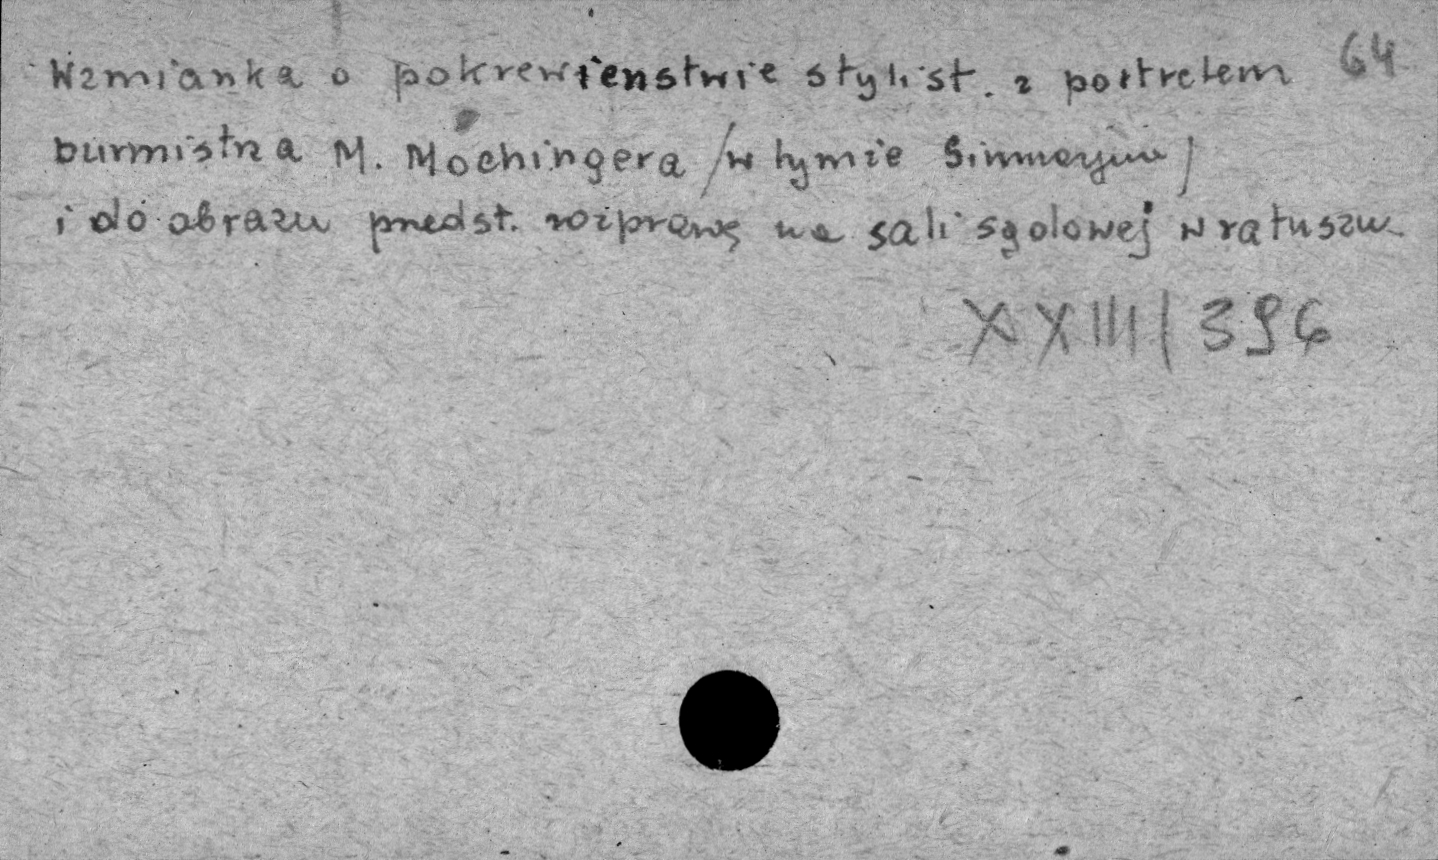 Wzmianka o pokrewieństwie stylist. z portretem 64
burmistrza M. Mochingera /w tymże
i do obrazu przedst. rozprawę na sali sądowej w ratuszu
XXIII/396